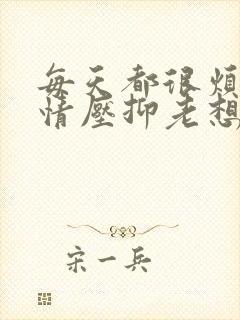 每天都很烦
情壓抑老想
宋一兵